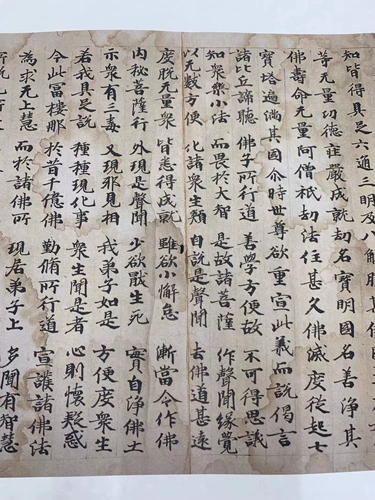 知皆得具足六通三明及八解脫其
等无量功德莊嚴成就劫名寶明國名善淨其
佛壽命无量阿僧祇劫法住甚久佛滅度後起七
寶塔遍滿其國尒時世尊欲重宣此義而說偈言
諸比丘諦聽 佛子所行道 善學方便故 不可得思議
知衆樂小法 而畏於大智 是故諸菩薩 作聲聞緣覺
以无數方便 化諸衆生類 自說是聲聞 去佛道甚遠
度脫无量衆 皆悉得成就 雖欲小懈怠 漸當令作佛
內秘菩薩行 外現是聲聞 少欲猒生死 實自淨佛土
示衆有三毒 又現邪見相 我弟子如是 方便度衆生
若我具足說 種種現化事 衆生聞是者 心則懷疑惑
今此富樓那 於昔千億佛 勤脩所行道 宣護諸佛法
為求无上慧 而於諸佛所 現居弟子上 多聞有智慧